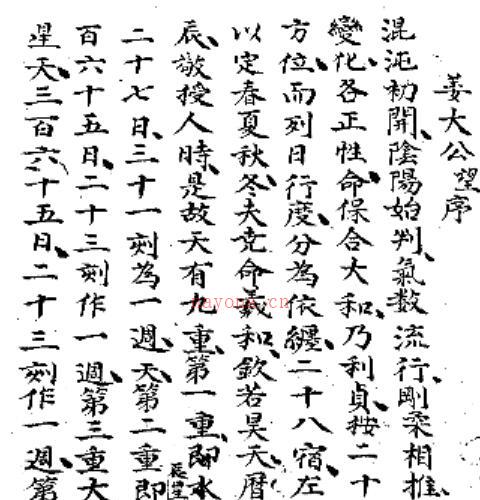 姜大公望序
混沌初開、陰陽始判、氣数流行、剛柔相推、
變化、各正性、命保合大和、乃利貞、按二十
方位、而列日行度、分為依纏、二十八宿、左
以定春夏秋、冬、夫尭命羲和、欽若昊天、曆
辰、敬授人時、是故天有九重、第一重、即水
二十七日、三十一刻為一週、天第二重即
辰星
百六十五日、二十三刻作一週、第三重大
星天、三百六、十五日、二十三刻作一週、第
nayona.cn